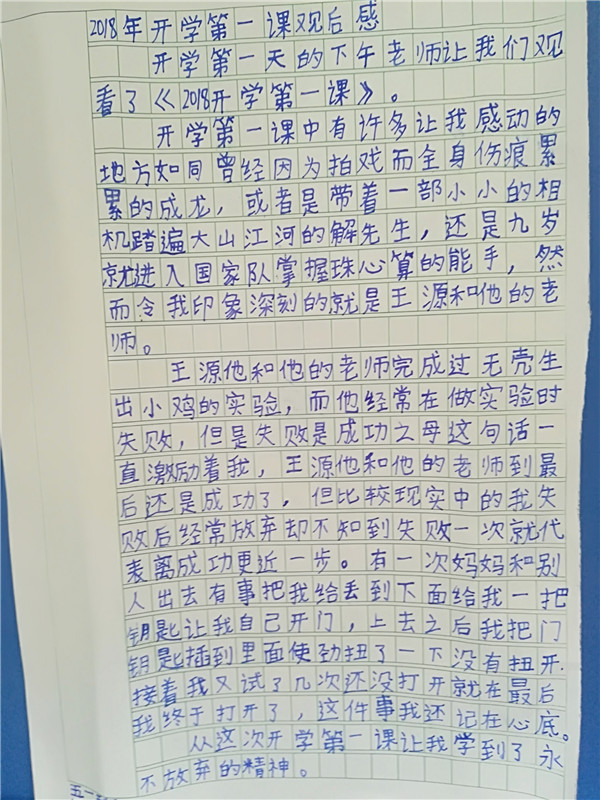 2018年开学第一课观后感
开学第一天的下午老师让我们观
看了《2018开学第一课》。
开学第一课中有许多让我感动的
地方如同曾经因为拍戏而全身伤痕累
累的成龙，或者是带着一部小小的相
机踏遍大山江河的解先生，还是九岁
就进入国家队掌握珠心算的能手，然
而令我印象深刻的就是王源和他的老
师。
王源他和他的老师完成过无壳生
出小鸡的实验，而他经常在做实验时
失败，但是失败是成功之母这句话一
直激励着我，王源他和他的老师到最
后还是成功了，但比较现实中的我失
败后经常放弃却不知到失败一次就代
表离成功更近一步。有一次妈妈和别
人出去有事把我给丢到下面给我一把
钥匙让我自己开门，上去之后我把门
钥匙插到里面使劲扭了一下没有扭开.
接着我又试了几次还没打开就在最后
我终于打开了，这件事我还记在心底。
从这次开学第一课让我学到了永
不放弃的精神。